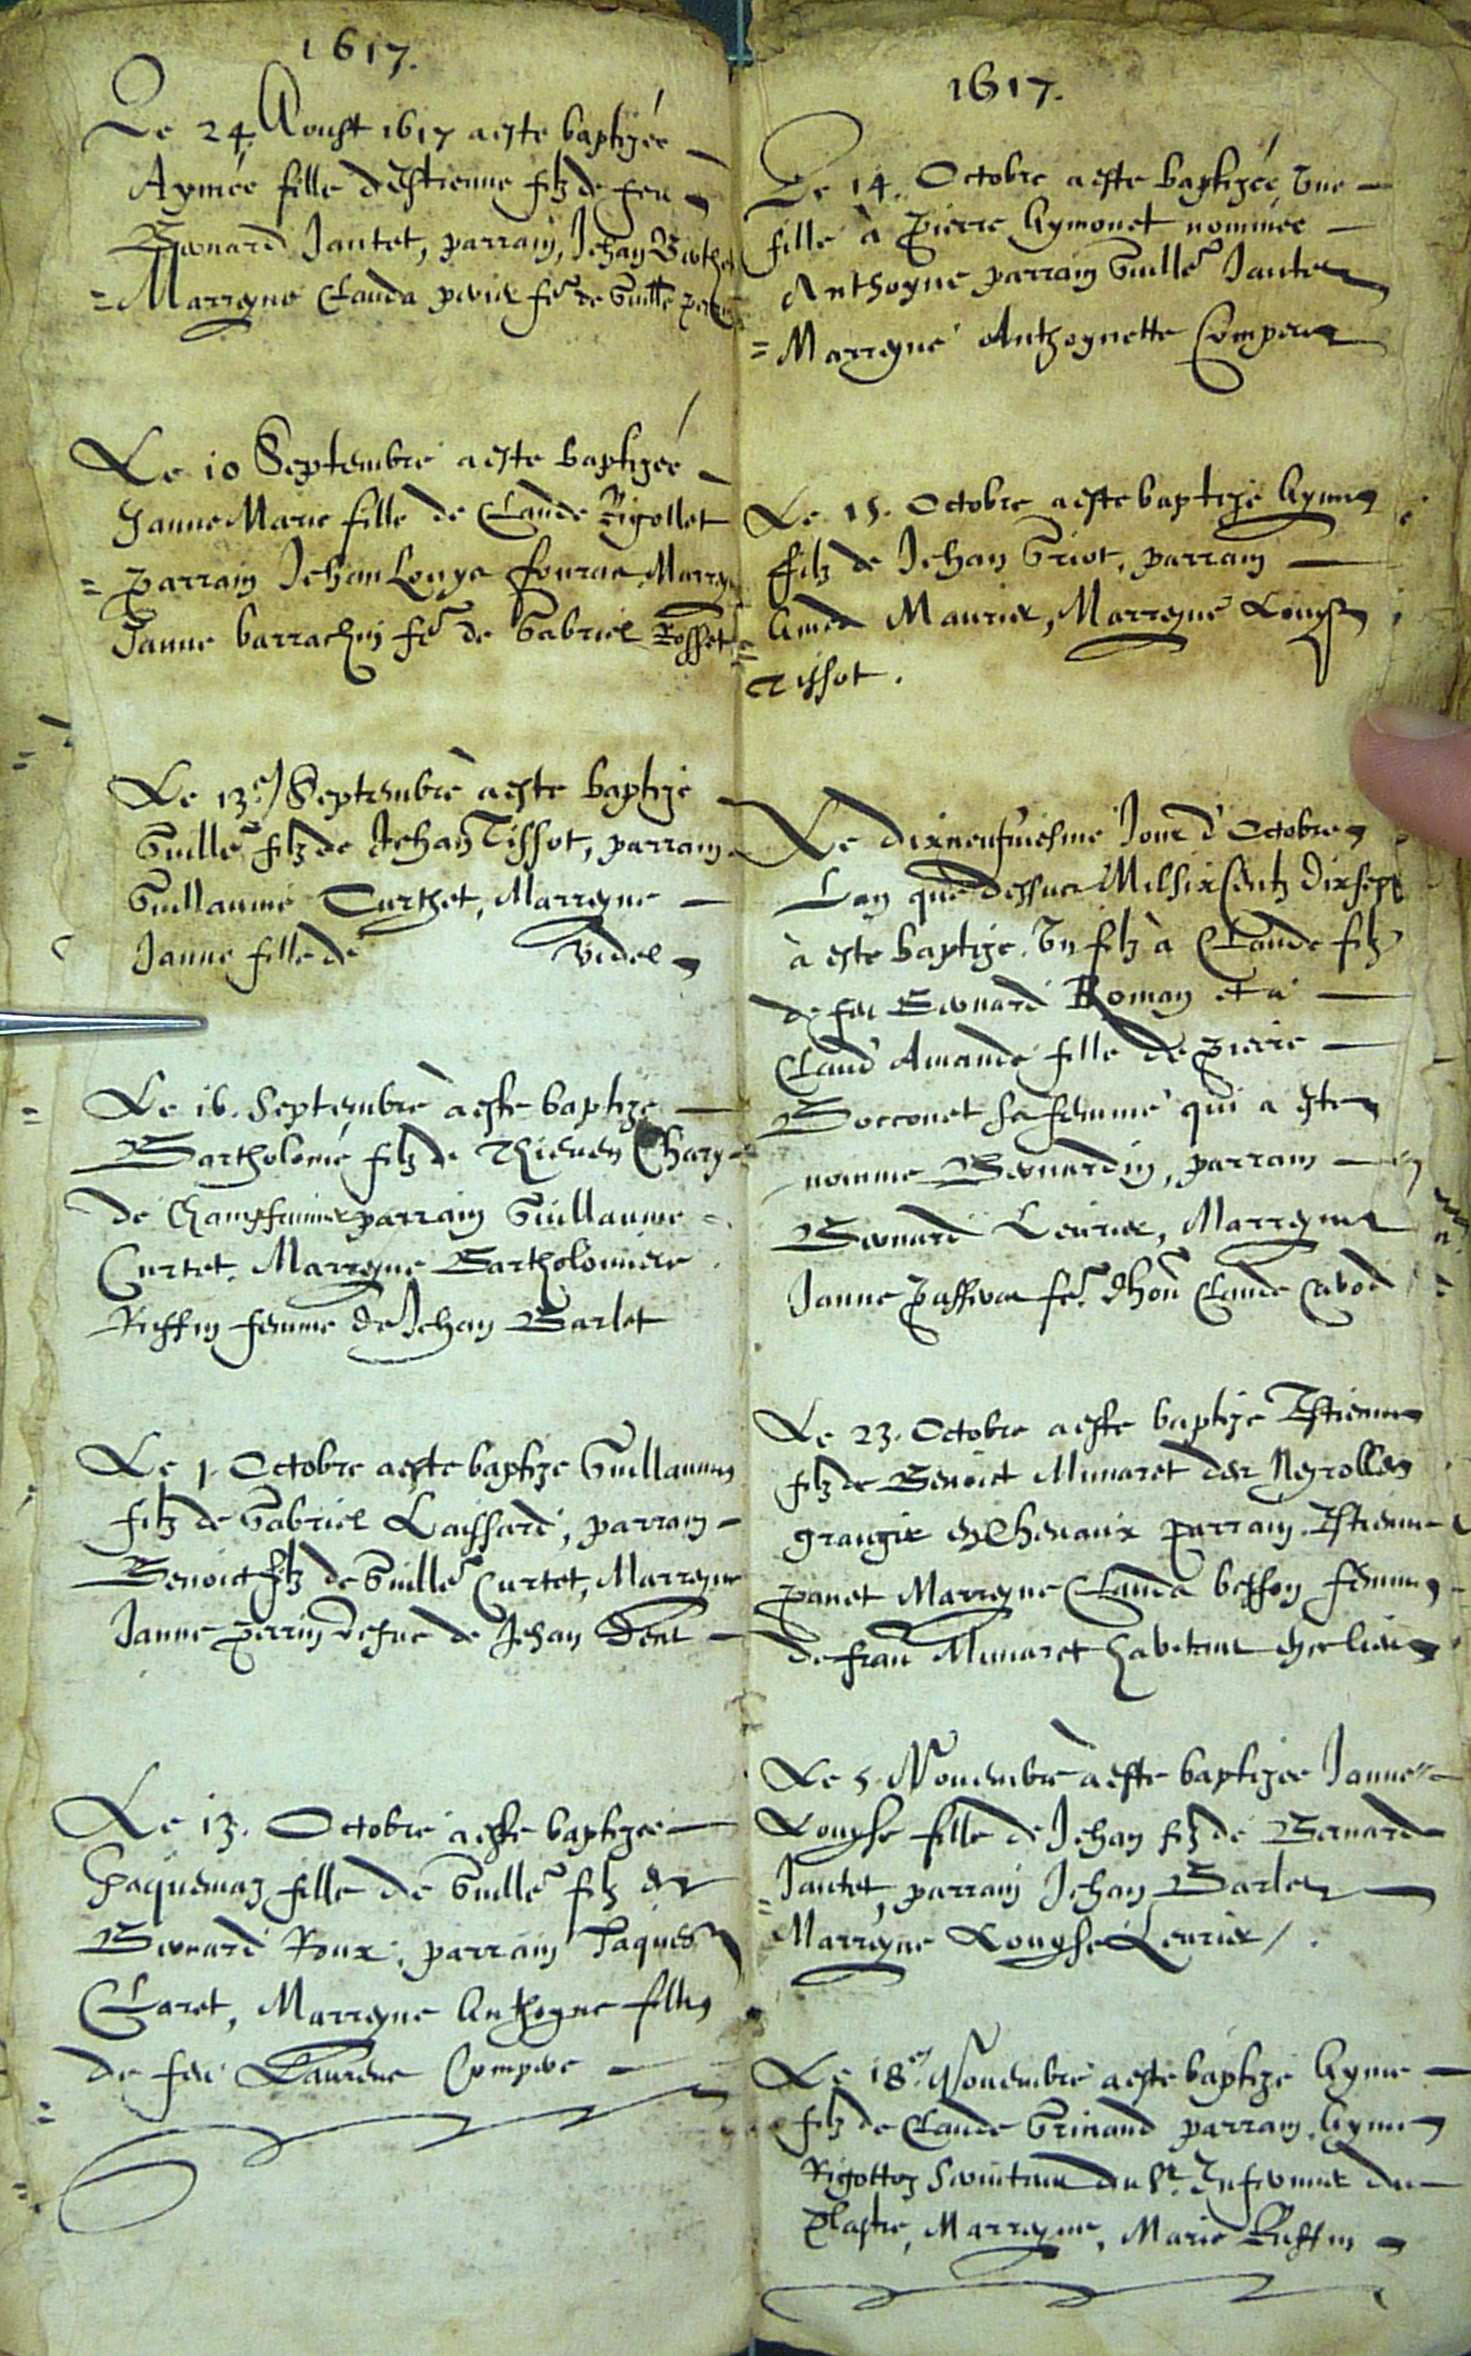 1617.
Le 24. Aoust 1617 a este baptizée
Aymée fille d'Estienne filz de feu
Bernard Jantet, parrain, Jehan
Marreyne Clauda fe de Guille
Le 10 Septembre a este baptizée
Janne Marie fille de Claude Rigollet
parrain Jehan Louys fourne Marreyne
Janne barrachin fe de Gabriel Rosset
Le 13e Septembre a este baptize
Guille filz de Jehan Tissot, parrain
Guillaume Curthet, Marreyne
Janne fille de Videl
Le 16. Septembre a este baptize
Bartholome filz de Thievent Chary
de parrain Guillaume
Curtet, Marreyne Bartholomiere
Ruffin femme de Jehan Barlet
Le 1. Octobre a este baptize Guillaume
filz de Gabriel Laissard, parrain
Benoict filz de Guille Curtet, Marreyne
Janne perrin vefue de Jehan
Le 13. Octobre a este baptizee
Jaquemaz fille de Guille filz de
Bernard Roux, parrain Jaques
Claret, Marreyne Anthoyne fille
de feu Laurent Compere
1617.
Le 14. Octobre a este baptizée Vne
fille à Pierre Aymonet nommée
Anthoyne parrain Guille Jantet
Marreyne Anthoynette Compere
Le 15. Octobre a este baptize Ayme
filz de Jehan Griot, parrain
Amed Maurier, Marreyne Louyse
Tissot.
Le dixneufuiesme Jour d'Octobre
Lan que dessus Mil six centz dix sept
à este baptize. Vn filz à Claude filz
de feu Bernard Roman et à
Claud' Amande fille de Pierre
Bocconet sa femme qui a este
nomme Bernardin, parrain
Bernard Leurier, Marreyne
Janne fe. d'hon Claude
Le 23. Octobre a este baptize Estienne
filz de Benoict Munaret des Neyrolles
grangier en Chevaux parrain Estienne
panet Marreyne Clauda besson femme
de fran Munaret habitant
Le 5. Nouembre a este baptizee Janne
Louyse fille de Jehan filz de Bernard
Jantet, parrain Jehan Barlet
Marreyne Louyse Leurier /.
Le 18e. Nouembre a este baptize Ayme
filz de Claude Grinand parrain Ayme
Rigottoz seruiteur du Sr. Infermier du
Plastre, Marreyne, Marie Ruffin